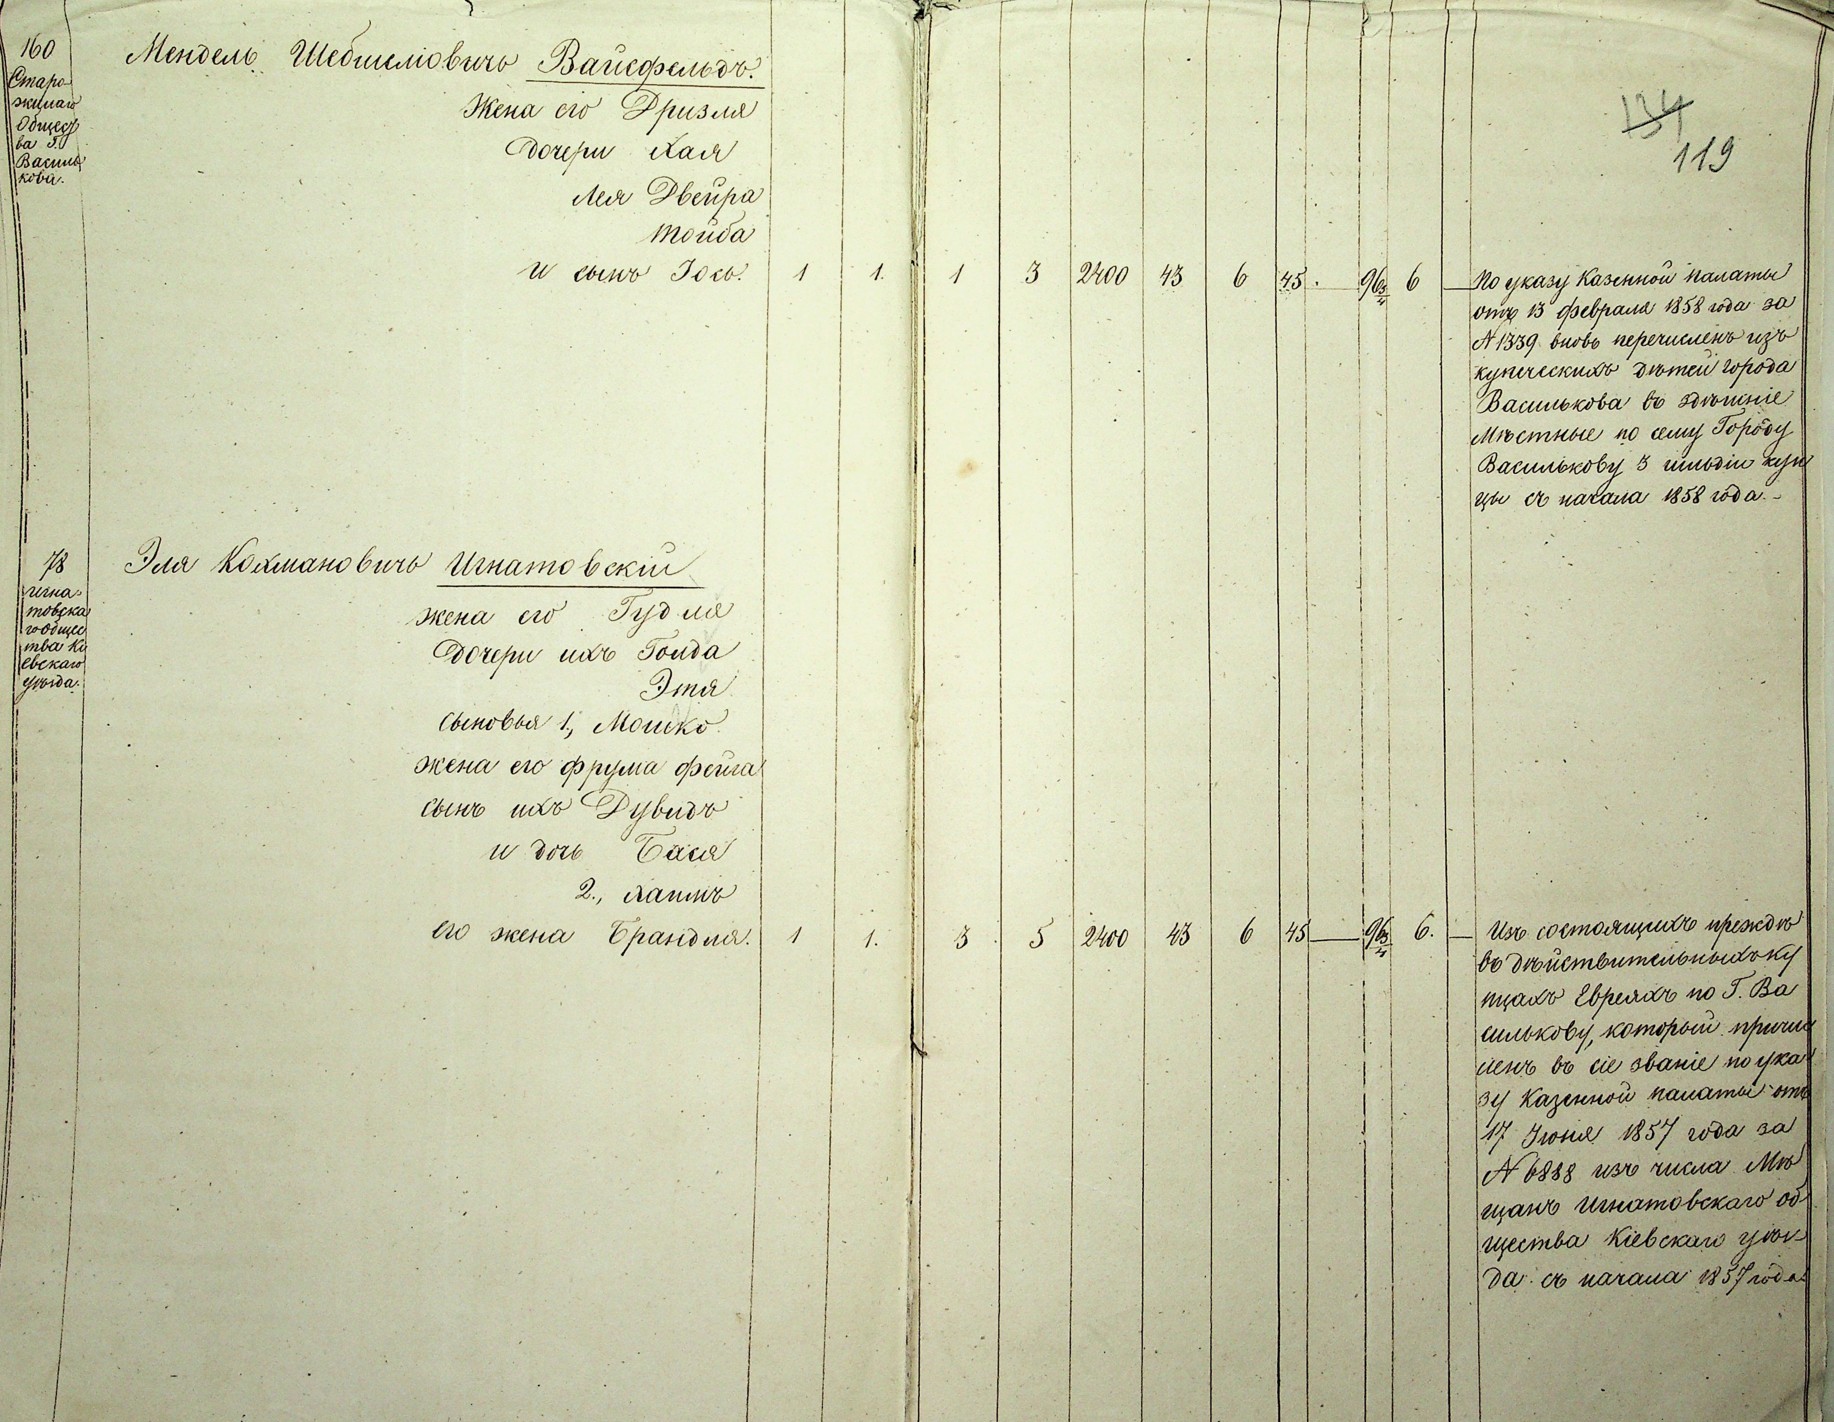 134
119
160
Старо
жилаго
Общест
ва г.
Василь
кова.
Мендель Шебшелiовичъ Вайсфельдъ.
Жена его Дризля
Дочери Хая
Лея Двейра
Тойба
и сынъ Iось. 1 1. 1 3 2400 43 6 45. — 96 3/4 6 —
По указу Казенной Палаты
отъ 13 февраля 1858 года за
№ 1339 вновь перечисленъ изъ
купеческихъ дѣтей города
Василькова въ здѣшніе
Мѣстные по сему Городу
Василькову 3 гильдіи куп
цы съ начала 1858 года. -
78
Игна-
товска
го Общес
тва Кі
евскаго
уѣзда.
Эля Кохмановичъ Игнатовскій
жена его Гудля
Дочери ихъ Голда
Этя
сыновья 1, Мошко
жена его Фрума Фейга
сынъ ихъ Дувидъ
и дочь Бася
2., Хаимъ
его жена Брандля. 1 1. 3. 5 2400 43 6 45 — 96 3/4 6. —
Изъ состоящихъ прежде
въ дѣйствительныхъ ку
пцахъ Евреяхъ по Г. Ва
силькову, который причи
сленъ въ сіе званіе по ука
зу Казенной палаты отъ
17 Iюня 1857 года за
№ 6888 изъ числа Мѣ
щанъ Игнатовскаго об
щества Кіевскаго уѣз-
да съ начала 1857 года.